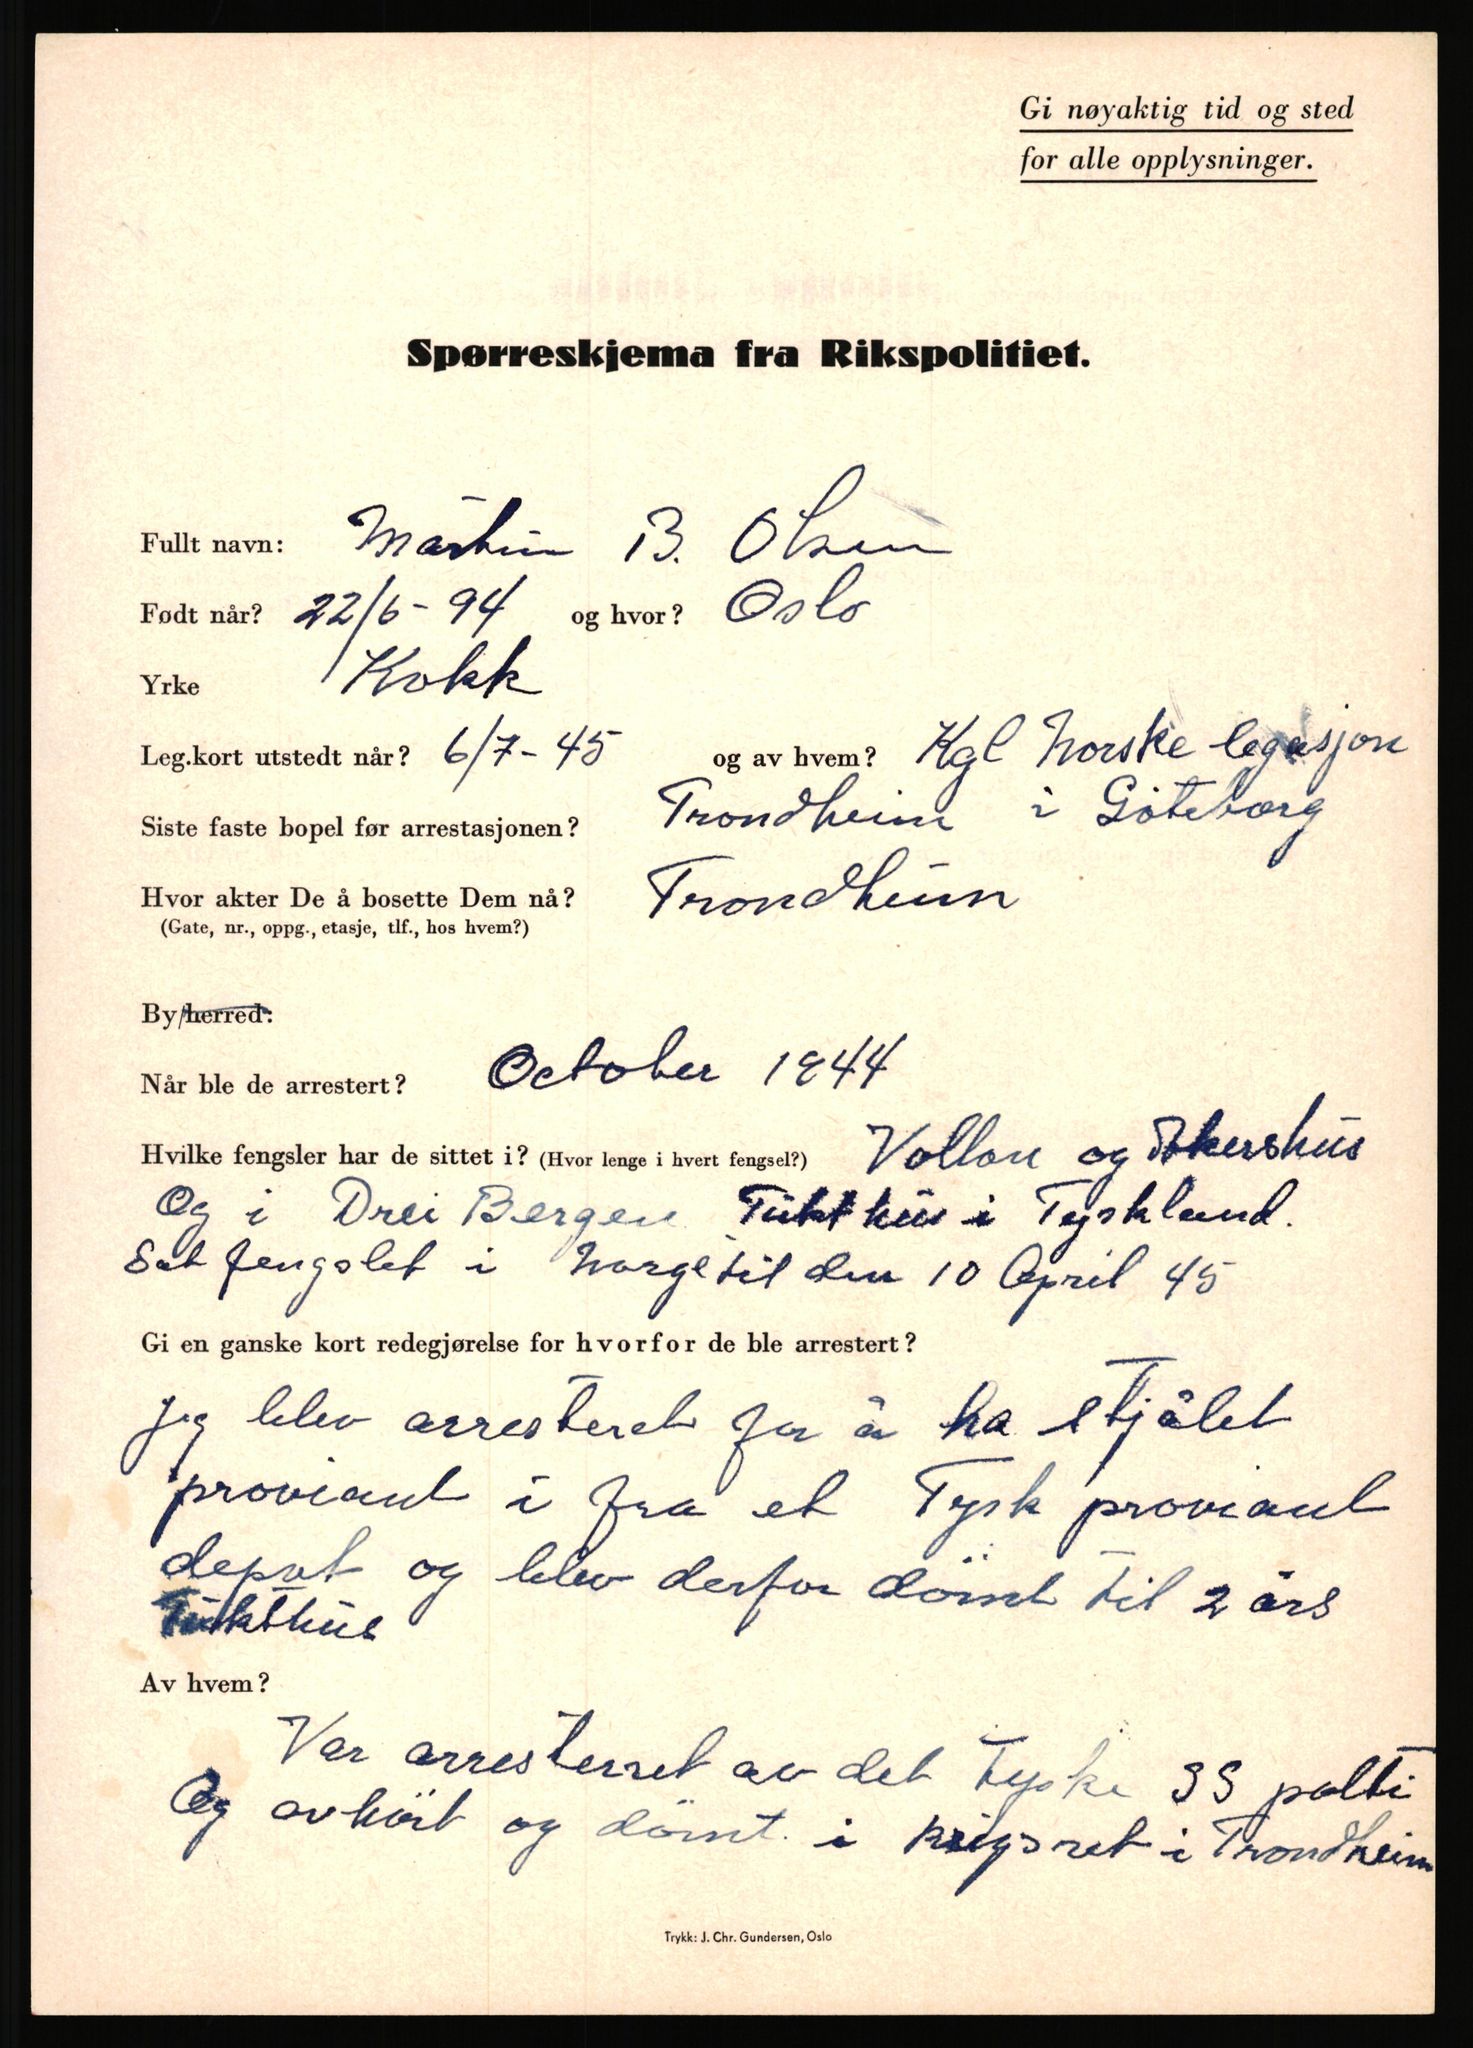 Gi nøyaktig tid og sted
for alle opplysninger.
Spørreskjema fra Rikspolitiet.
Fullt navn: Martin B. Olsen
Født når? 22/6-94 og hvor? Oslo
Yrke Kokk
Leg.kort utstedt når? 6/7-45 og av hvem? Kgl Norske legasjon
Siste faste bopel før arrestasjonen? Trondheim i Göteborg
Hvor akter De å bosette Dem nå? Trondheim
(Gate, nr., oppg., etasje, tlf., hos hvem?)
By/herred:
Når ble de arrestert? October 1944
Hvilke fengsler har de sittet i? (Hvor lenge i hvert fengsel?) Vollan og Akershus
Og i Drei Bergen Tukthus i Tyskland.
Sat fengslet i Norge til den 10 April 45
Gi en ganske kort redegjørelse for hvorfor de ble arrestert?
Jeg blev arresteret for å ha stjålet
proviant i fra et Tysk proviant
depot og blev derfor dömt til 2 års
Tukthus
Av hvem?
Var arresterret av det Tyske SS politi
Og avhört og dömt. i krigsret i Trondheim
Trykk: J. Chr. Gundersen, Oslo